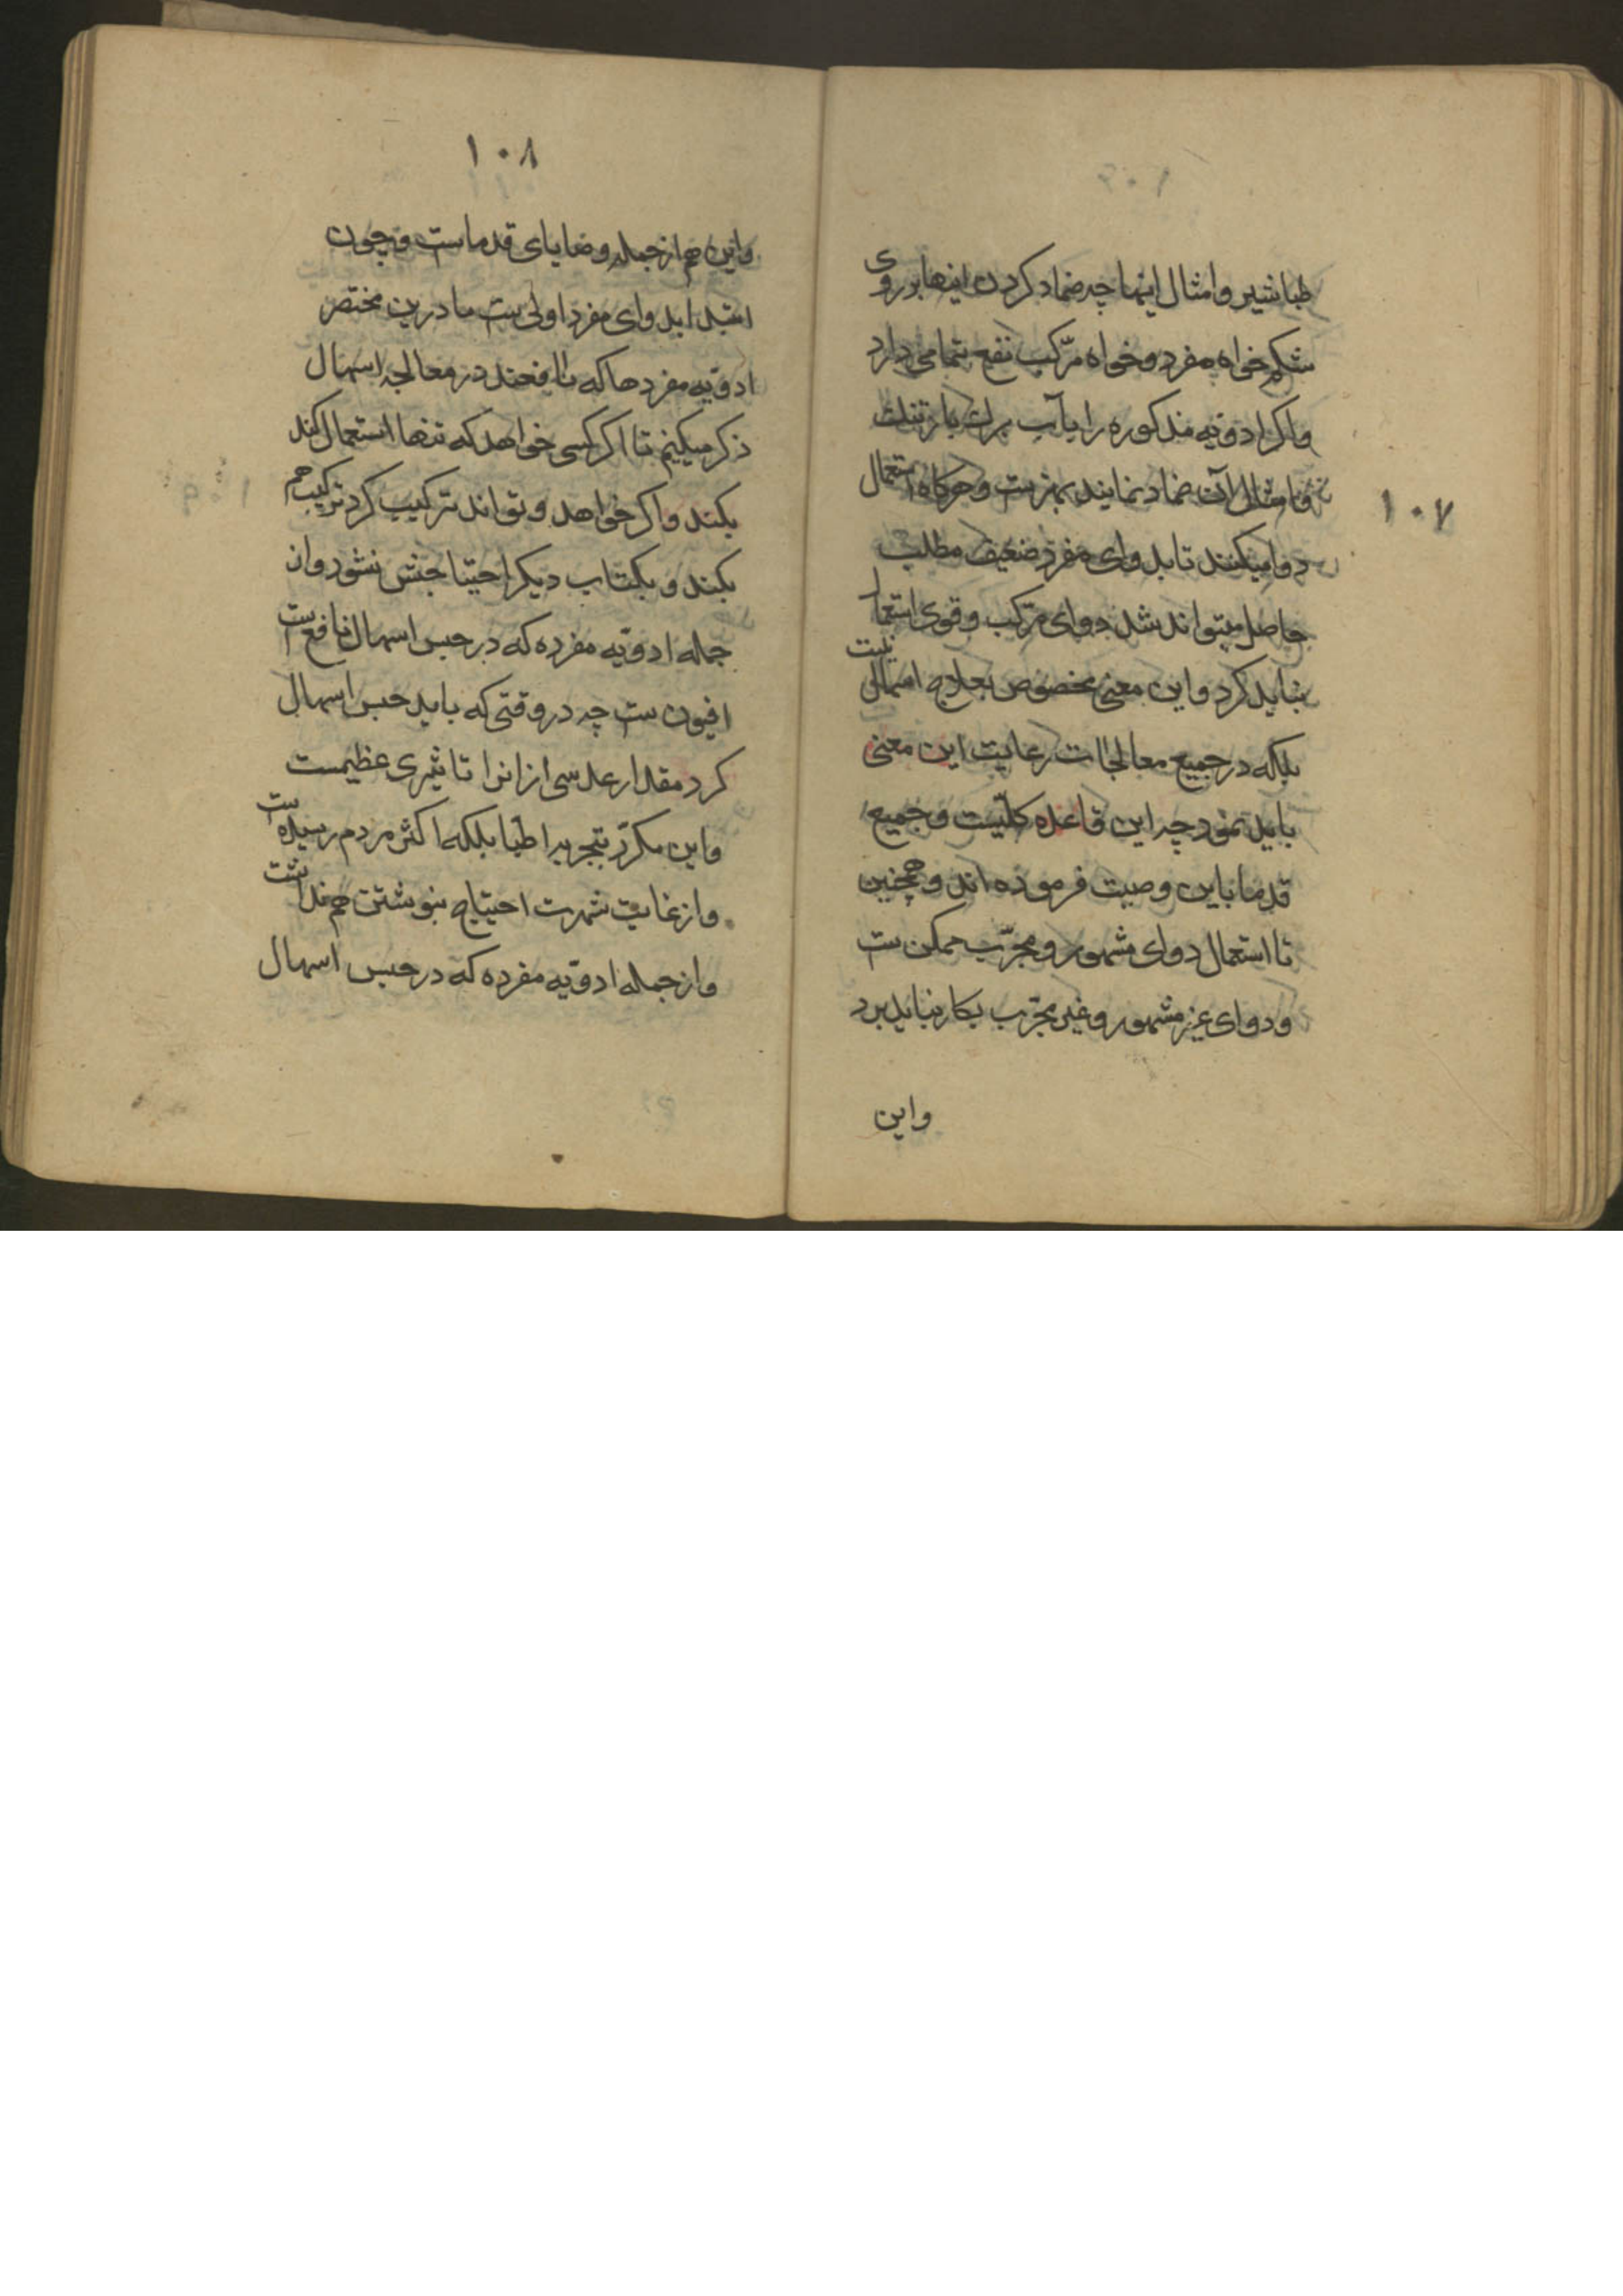 ۱۰۷
طباشیر و امثال اینها چه ضماد کردن اینها بر روی
شکم خواه مفرد و خواه مرّکب نفع تمامی دارد
و اکر ادویّه مذکوره را بآب برك بارتنك
و امثال آن ضماد نمایند بهترست و هرکاه استعمال
دوا میکنند تا بدوای مفرد ضعیف مطلب
حاصل میتواند شد دوای مرّکب و قوی استعمال
نباید کرد و این معنی مخصوص بعلاج اسهال نیست
بلکه در جمیع معالجات رعایت این معنی
باید نمود چه این قاعده کلّیست و جمیع
قدما باین وصیت فرموده اند و همچنین
تا استعمال دوای مشهور و مجرّب ممکن ست
و دوای غیر مشهور و غیر مجرّب بکار نباید برد
و این
۱۰۸
و این هم از جمله وضایای قدماست و چون
ابتدا بدوای مفرد اولی ست ما درین مختصر
ادویّه مفردها که نافعند در معالجه اسهال
ذکر میکنیم تا اکر کسی خواهد که تنها استعمال کند
بکند و اکر خواهد و تواند ترکیب کرد ترکیب هم
بکند و بکتاب دیکر احتیاجش نشود و از
جمله ادویّه مفرده که در حبس اسهال نافع ست
افیون ست چه در وقتی که باید حبس اسهال
کرد مقدار عدسی از انرا تاثیری عظیمست
و این مکرّر بتجربه اطبّا بلکه اکثر مردم رسیده ست
و از غایت شهرت احتیاج بنوشتن هم نداشت
و از جمله ادویّه مفرده که در حبس اسهال